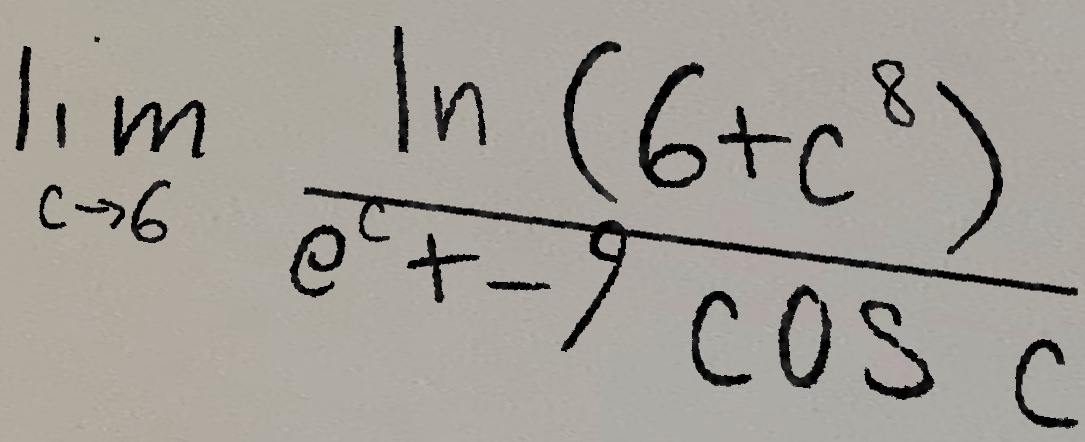 lim c→6 ln (6+c^8)
e^c + -9 cos c